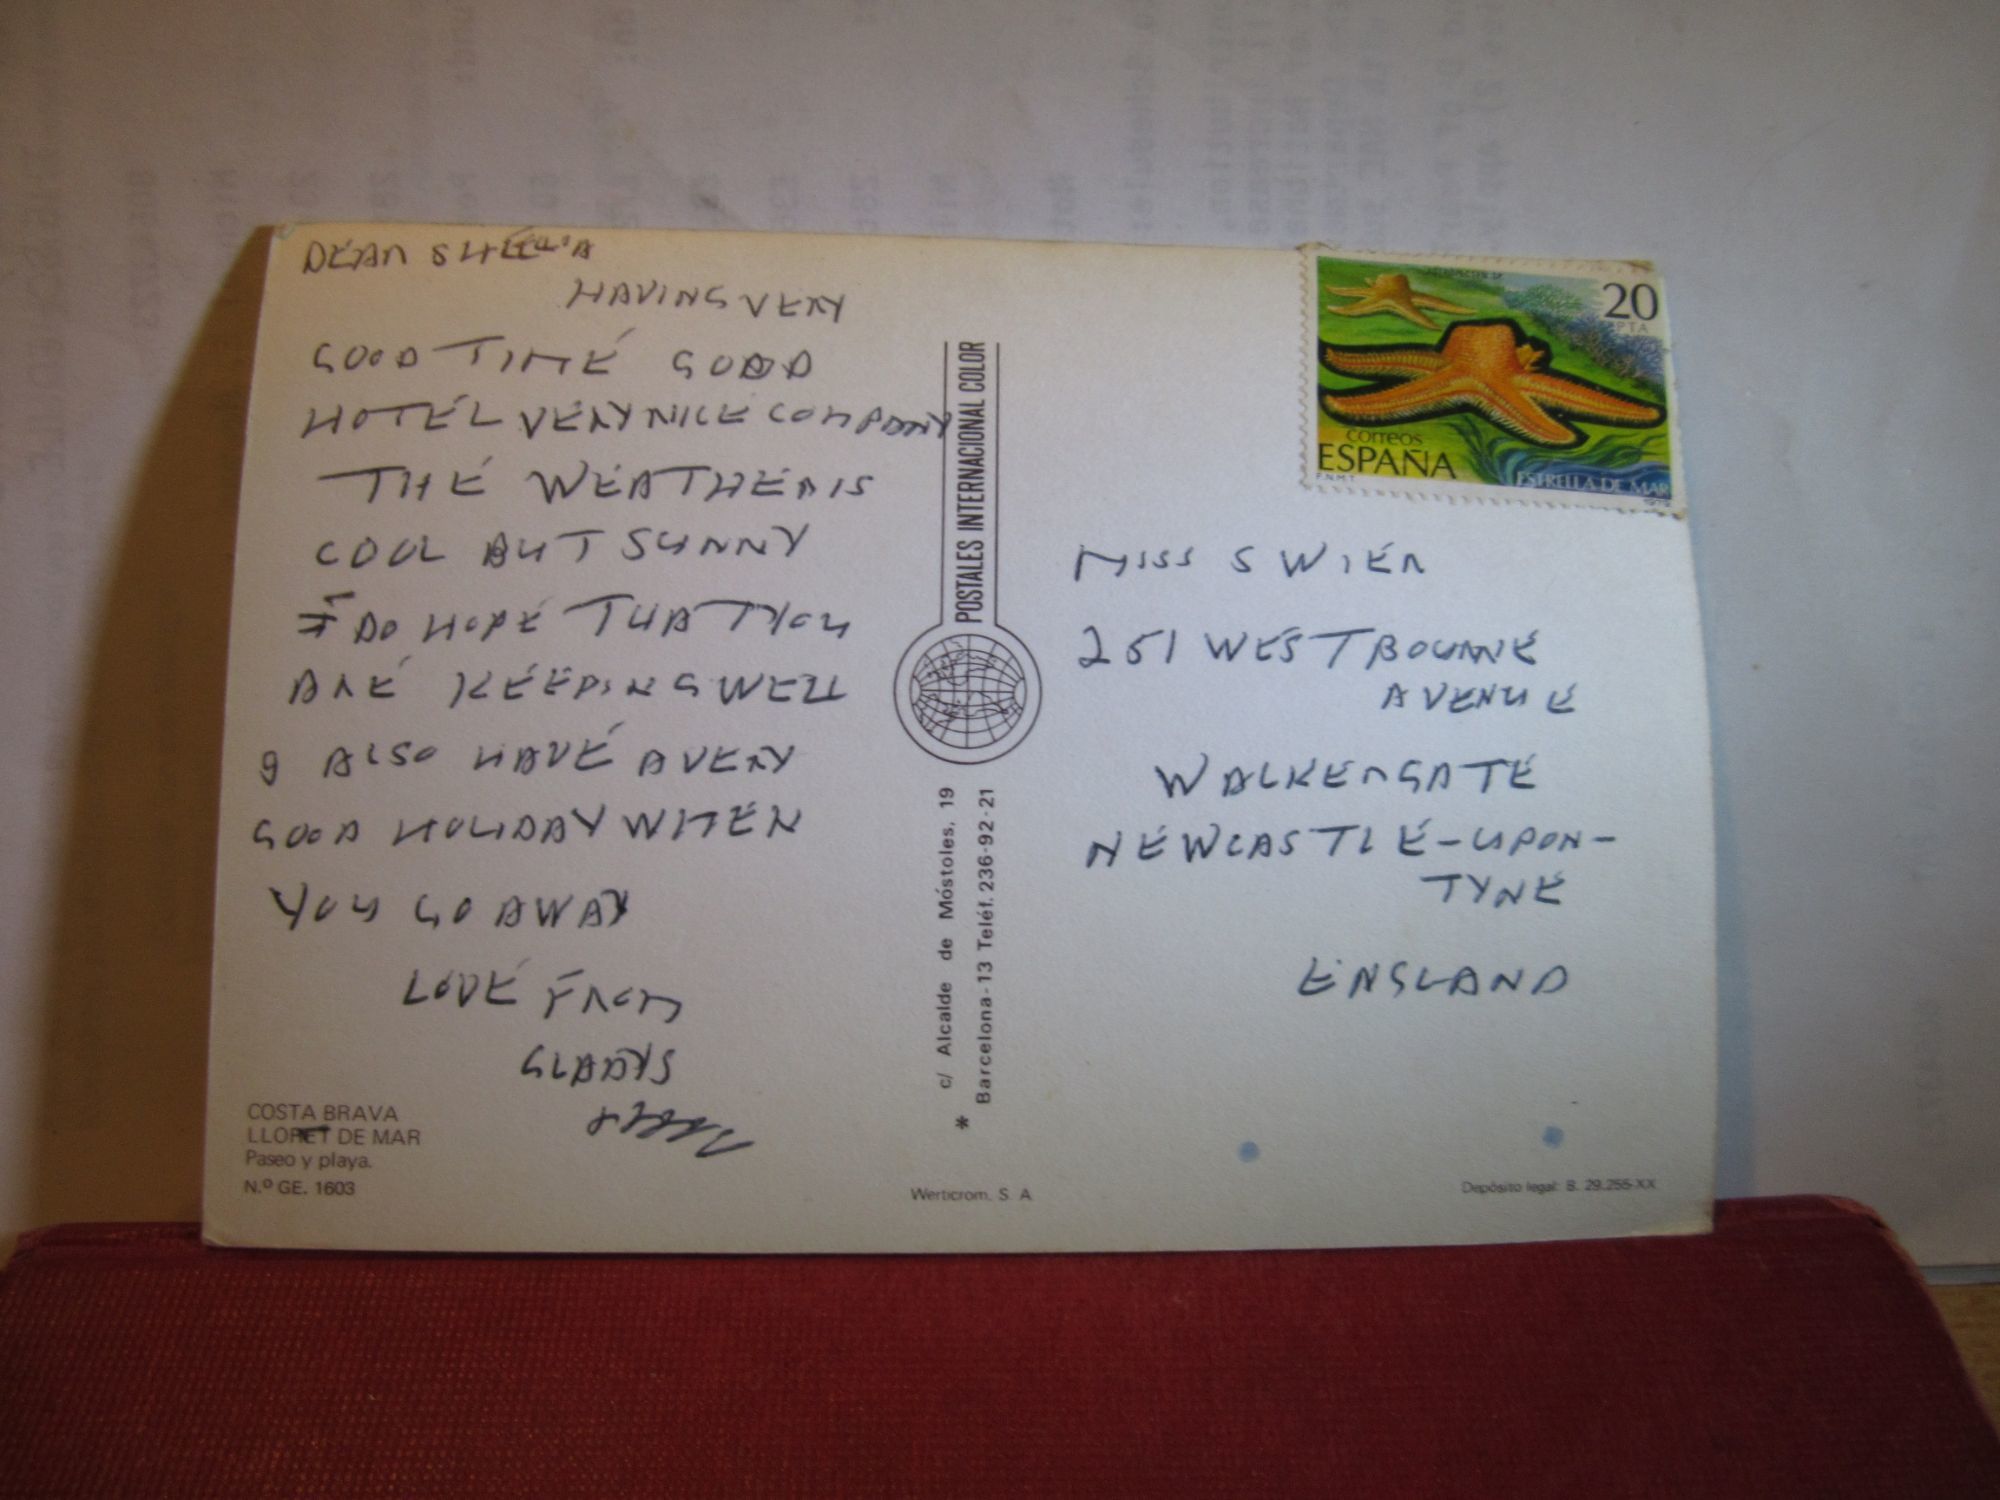 DEAR SHEILA
HAVING VERY
GOOD TIME GOOD
HOTEL VERY NICE COMPANY
THE WEATHER IS
COOL BUT SUNNY
I DO HOPE THAT YOU
ARE KEEPING WELL
I ALSO HAVE A VERY
GOOD HOLIDAY WHEN
YOU GO AWAY
LOVE FROM
GLADYS
COSTA BRAVA
LLORET DE MAR
Paseo y playa.
N.º GE. 1603
POSTALES INTERNACIONAL COLOR
c/ Alcalde de Móstoles, 19
* Barcelona-13 Teléf. 236-92-21
Werticrom, S. A.
20
PTA
CORREOS
ESPAÑA
ESTRELLA DE MAR
F.N.M.T.
1979
MISS S WIER
251 WESTBOURNE
AVENUE
WALKERGATE
NEWCASTLE-UPON-
TYNE
ENGLAND
Depósito legal: B. 29.255-XX